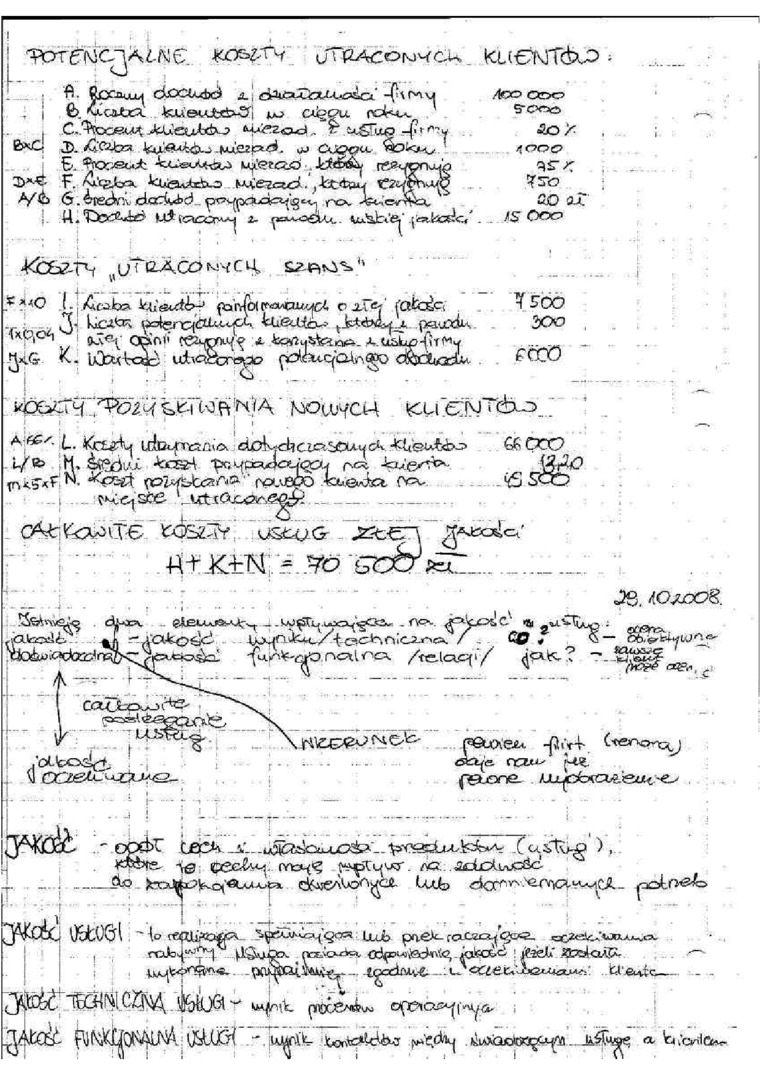 POTENCJALNE KOSZTY UTRACONYCH KLIENTÓW:
A. Roczny dochód z działalności firmy 100 000
B. Liczba klientów w ciągu roku 5000
C. Procent klientów niezad. z usług firmy 20 %
BxC D. Liczba klientów niezad. w ciągu roku 1000
E. Procent klientów niezad., którzy rezygnują 75 %
DxE F. Liczba klientów niezad., którzy rezygnują 750
A/B G. Średni dochód przypadający na klienta 20 zł
H. Dochód utracony z powodu niskiej jakości 15 000
KOSZTY „UTRACONYCH SZANS"
Fx10 I. Liczba klientów poinformowanych o złej jakości 7 500
Ix0,04 J. Liczba potencjalnych klientów, którzy z powodu 300
złej opinii rezygnują z korzystania z usług firmy
JxG K. Wartość utraconego potencjalnego dochodu 6000
KOSZTY POZYSKIWANIA NOWYCH KLIENTÓW
A 66% L. Koszty utrzymania dotychczasowych klientów 66 000
L/B M. Średni koszt przypadający na klienta 13,20
mx5xF N. Koszt pozyskania nowego klienta na 49 500
miejsce utraconego
CAŁKOWITE KOSZTY USŁUG ZŁEJ JAKOŚCI
H+K+N = 70 500 zł
29.10.2008.
Istnieją dwa elementy wpływające na jakość usług:
jakość - jakość wyniku /techniczna/ co? - ocena obiektywna
doświadczona - jakość funkcjonalna /relacji/ jak? - zawsze klient może ocenić
całkowite
postrzeganie
usług
WIZERUNEK pewien filtr (renoma)
daje nam już
pewne wyobrażenie
jakość
oczekiwana
JAKOŚĆ - ogół cech i właściwości produktów (usług),
które te cechy mają wpływ na zdolność
do zaspokojenia określonych lub domniemanych potrzeb
JAKOŚĆ USŁUGI - to realizacja spełniająca lub przekraczająca oczekiwania
nabywcy. Usługa posiada odpowiednią jakość jeżeli została
wykonana przynajmniej zgodnie z oczekiwaniami klienta
JAKOŚĆ TECHNICZNA USŁUGI - wynik procesów operacyjnych
JAKOŚĆ FUNKCJONALNA USŁUGI - wynik kontaktów między świadczącym usługę a klientem